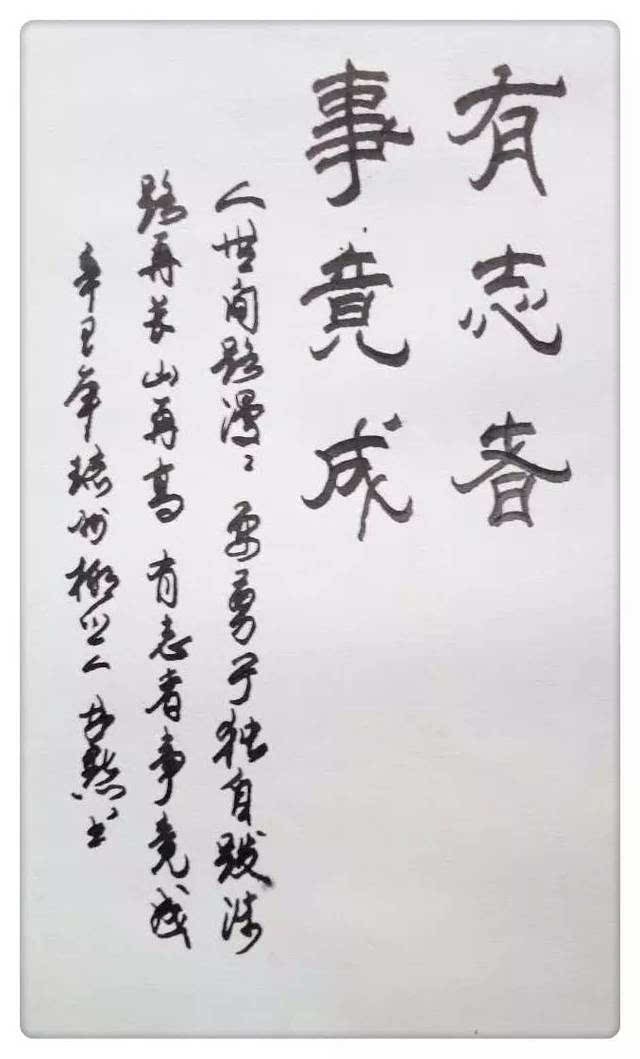 有志者
事竟成
人世间路漫漫要勇于独自跋涉
路再长山再高有志者事竟成
年
书